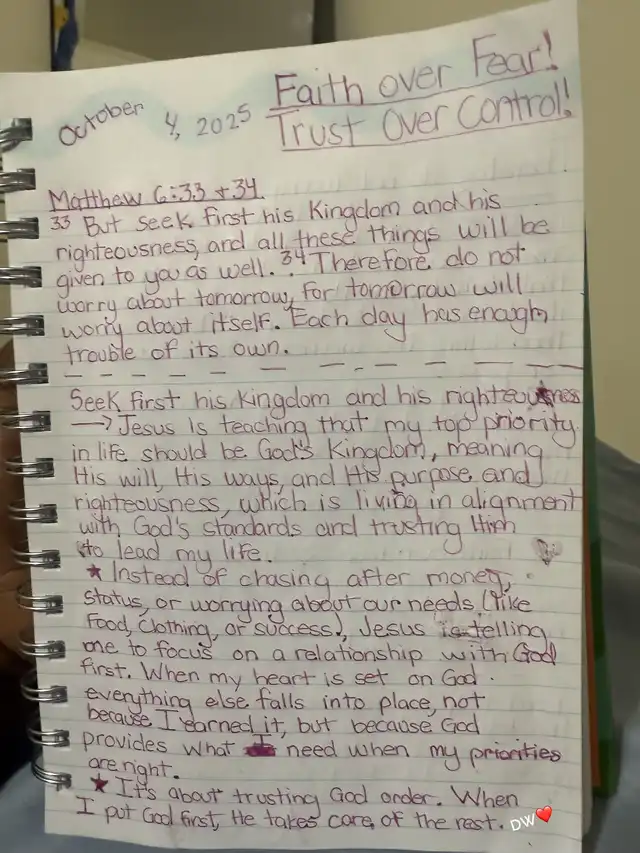 October 4, 2025
Faith over Fear!
Trust Over Control!
Matthew 6:33 + 34
33 But seek first his Kingdom and his
righteousness, and all these things will be
given to you as well. 34 Therefore do not
worry about tomorrow, for tomorrow will
worry about itself. Each day has enough
trouble of its own.
Seek first his kingdom and his righteousness
→ Jesus is teaching that my top priority
in life should be God's Kingdom, meaning
His will, His ways, and His purpose and
righteousness, which is living in alignment
with God's standards and trusting Him
to lead my life.
★ Instead of chasing after money,
status, or worrying about our needs (like
food, clothing, or success), Jesus is telling
me to focus on a relationship with God
first. When my heart is set on God
everything else falls into place, not
because I earned it, but because God
provides what I need when my priorities
are right.
★ It's about trusting God order. When
I put God first, He takes care of the rest. DW❤️